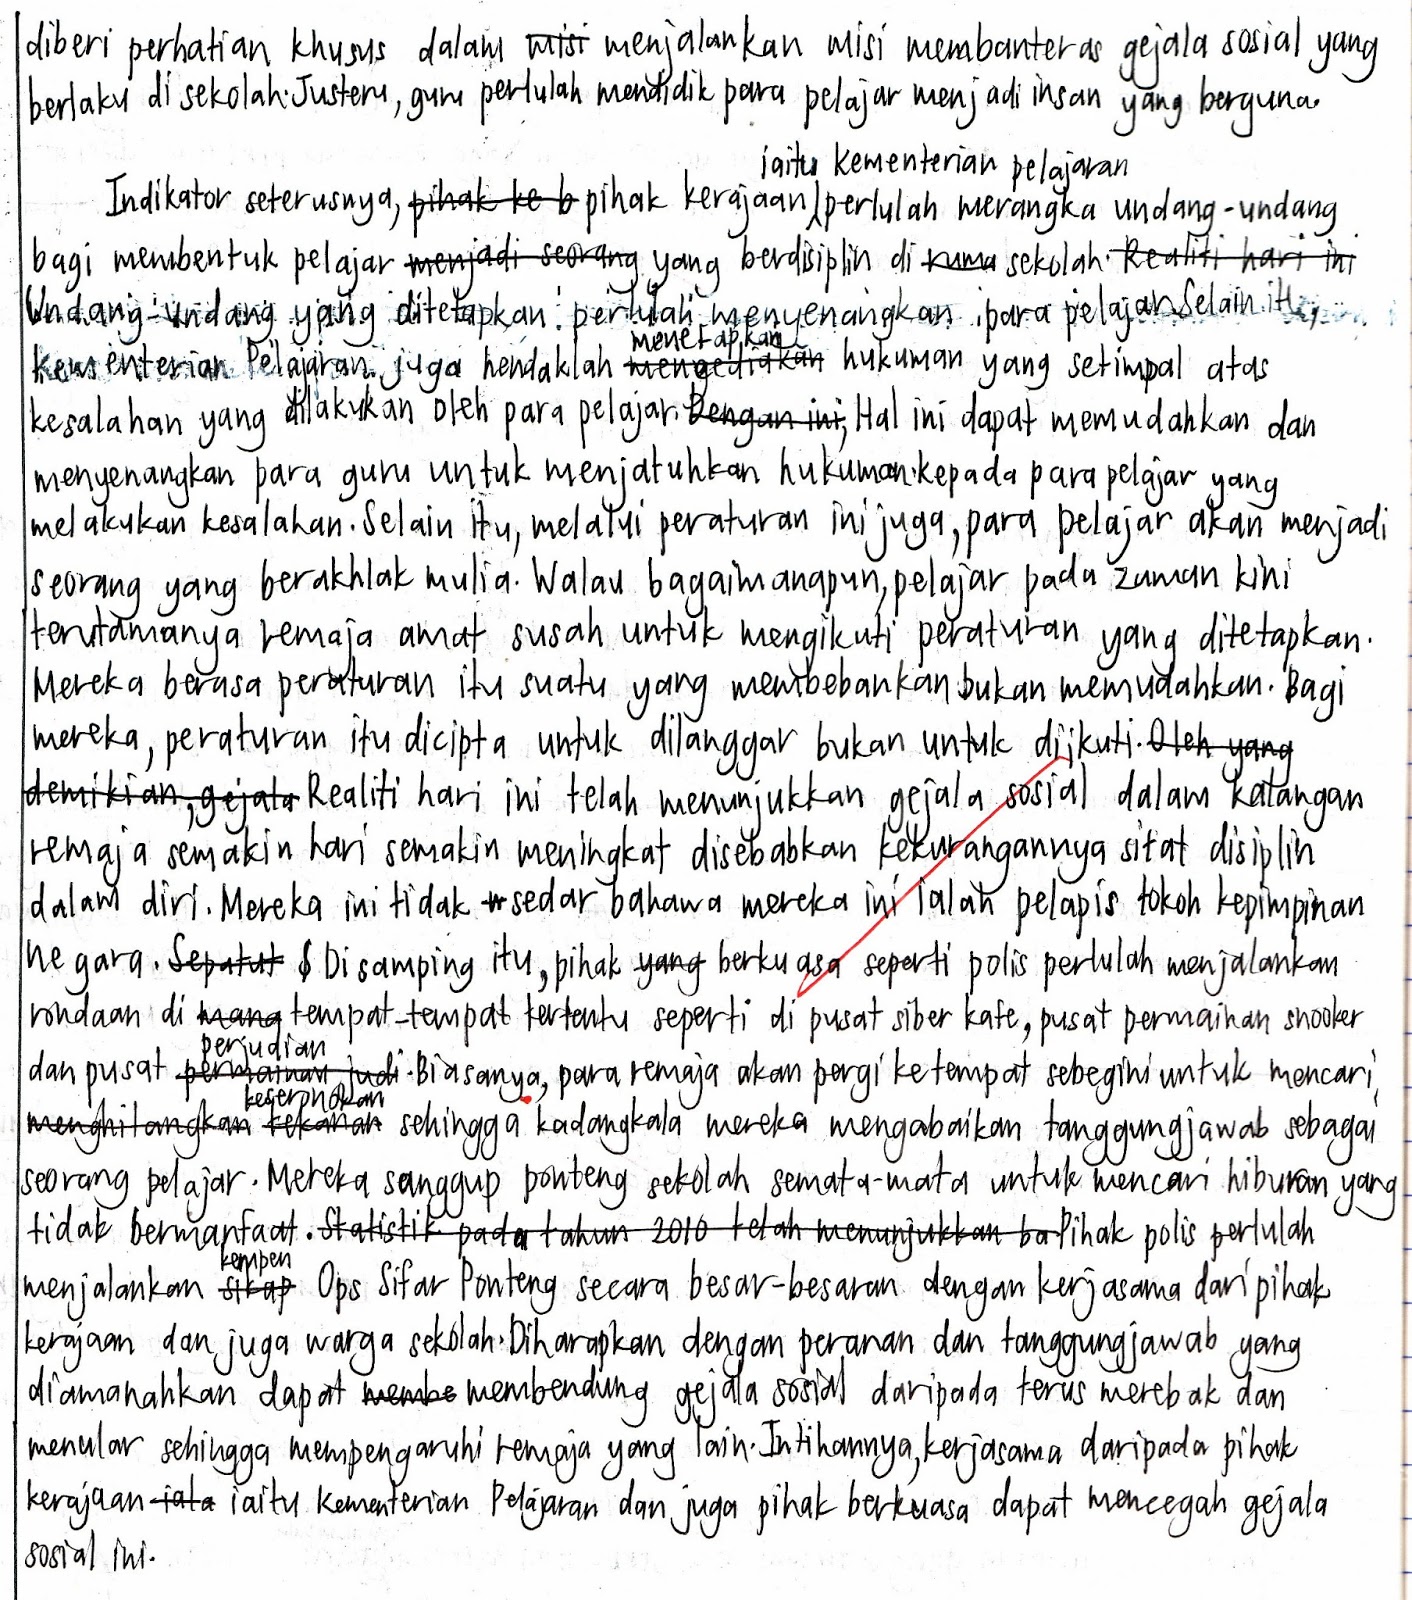 diberi perhatian khusus dalam misi menjalankan misi membanteras gejala sosial yang
berlaku di sekolah. Justeru, guru perlulah mendidik para pelajar menjadi insan yang berguna.
iaitu kementerian pelajaran
Indikator seterusnya, pihak ke b pihak kerajaan, perlulah merangka undang-undang
bagi membentuk pelajar menjadi seorang yang berdisiplin di ruma sekolah. Realiti hari ini
Undang-undang yang ditetapkan perlulah menyenangkan para pelajar. Selain itu,
menetapkan
kementerian Pelajaran juga hendaklah mengediakan hukuman yang setimpal atas
kesalahan yang dilakukan oleh para pelajar. Dengan ini, Hal ini dapat memudahkan dan
menyenangkan para guru untuk menjatuhkan hukuman kepada para pelajar yang
melakukan kesalahan. Selain itu, melalui peraturan ini juga, para pelajar akan menjadi
seorang yang berakhlak mulia. Walau bagaimanapun, pelajar pada zaman kini
terutamanya remaja amat susah untuk mengikuti peraturan yang ditetapkan.
Mereka berasa peraturan itu suatu yang membebankan bukan memudahkan. Bagi
mereka, peraturan itu dicipta untuk dilanggar bukan untuk diikuti. Oleh yang
demikian, gejala Realiti hari ini telah menunjukkan gejala sosial dalam kalangan
remaja semakin hari semakin meningkat disebabkan kekurangannya sifat disiplin
dalam diri. Mereka ini tidak sedar bahawa mereka ini ialah pelapis tokoh kepimpinan
negara. Sepatut S Disamping itu, pihak yang berkuasa seperti polis perlulah menjalankan
rondaan di mana tempat-tempat tertentu seperti di pusat siber kafe, pusat permainan snooker
perjudian
dan pusat permainan judi. Biasanya, para remaja akan pergi ke tempat sebegini untuk mencari
keseronokan
menghilangkan tekanan sehingga kadangkala mereka mengabaikan tanggungjawab sebagai
seorang pelajar. Mereka sanggup ponteng sekolah semata-mata untuk mencari hiburan yang
tidak bermanfaat. Statistik pada tahun 2010 telah menunjukkan ba Pihak polis perlulah
kempen
menjalankan sikap Ops Sifar Ponteng secara besar-besaran dengan kerjasama dari pihak
kerajaan dan juga warga sekolah. Diharapkan dengan peranan dan tanggungjawab yang
diamanahkan dapat membe membendung gejala sosial daripada terus merebak dan
menular sehingga mempengaruhi remaja yang lain. Intihannya, kerjasama daripada pihak
kerajaan iata iaitu Kementerian Pelajaran dan juga pihak berkuasa dapat mencegah gejala
sosial ini.